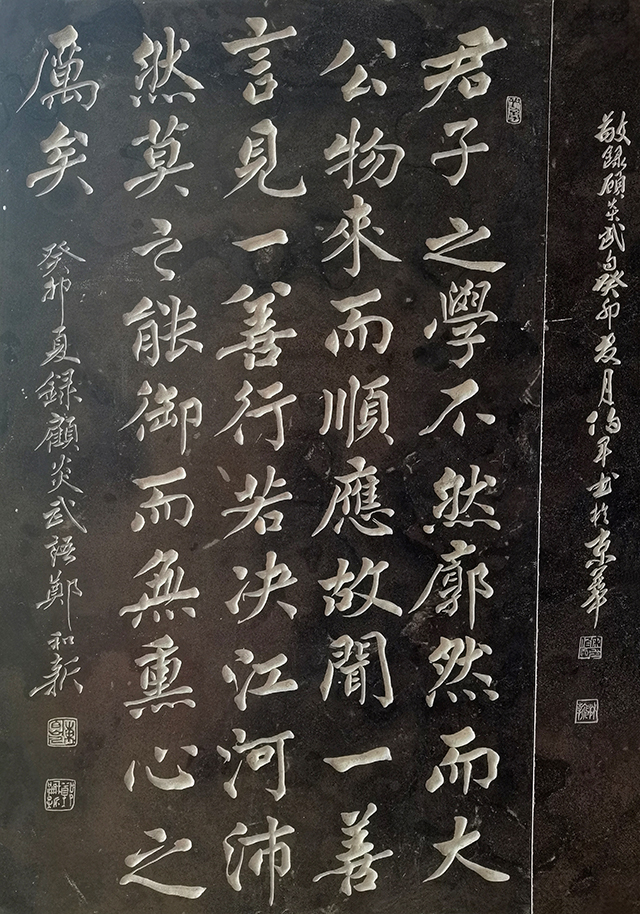 敬录顾炎武句癸卯夏月伯军书于东华
君子之學不然廓然而大
公物來而順應故聞一善
言見一善行若決江河沛
然莫之能御而無熏心之
厲矣
癸卯夏録顧炎武語鄭和新